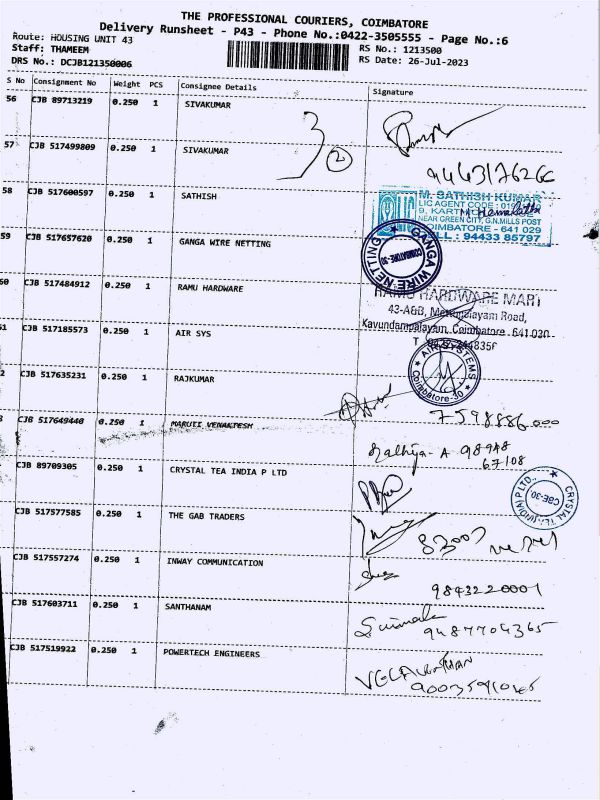 THE PROFESSIONAL COURIERS, COIMBATORE
Delivery Runsheet - P43 - Phone No.:0422-3505555 - Page No.:6
Route: HOUSING UNIT 43
RS No.: 1213500
Staff: THAMEEM
RS Date: 26-Jul-2023
DRS No.: DCJB121350006
S No Consignment No Weight PCS Consignee Details Signature
56 CJB 89713219 0.250 1 SIVAKUMAR
57 CJB 517499809 0.250 1 SIVAKUMAR
3 2
9443176266
58 CJB 517600597 0.250 1 SATHISH
M. SATHISH KUMAR
LIC AGENT CODE
9, KARTHI
M. Hemalatha
NEAR GREEN CITY, G.N.MILLS POST
COIMBATORE - 641 029
CELL : 94433 85797
59 CJB 517657620 0.250 1 GANGA WIRE NETTING
GANGA WIRE NETTING
COIMBATORE-30
60 CJB 517484912 0.250 1 RAMU HARDWARE
RAMU HARDWARE MART
43-A&B, Mettupalayam Road,
Kavundampalayam, Coimbatore - 641 030
61 CJB 517185573 0.250 1 AIR SYS
AIR SYSTEMS
Coimbatore-30
2 CJB 517635231 0.250 1 RAJKUMAR
7598886000
3 CJB 517649440 0.250 1 MARUTI VENAKTESH
A 98948
67108
CJB 89709305 0.250 1 CRYSTAL TEA INDIA P LTD
CRYSTAL TEA (INDIA) P LTD.,
CBE-30
CJB 517577585 0.250 1 THE GAB TRADERS
83007
CJB 517557274 0.250 1 INWAY COMMUNICATION
9843220001
CJB 517603711 0.250 1 SANTHANAM
9487704365
CJB 517519922 0.250 1 POWERTECH ENGINEERS